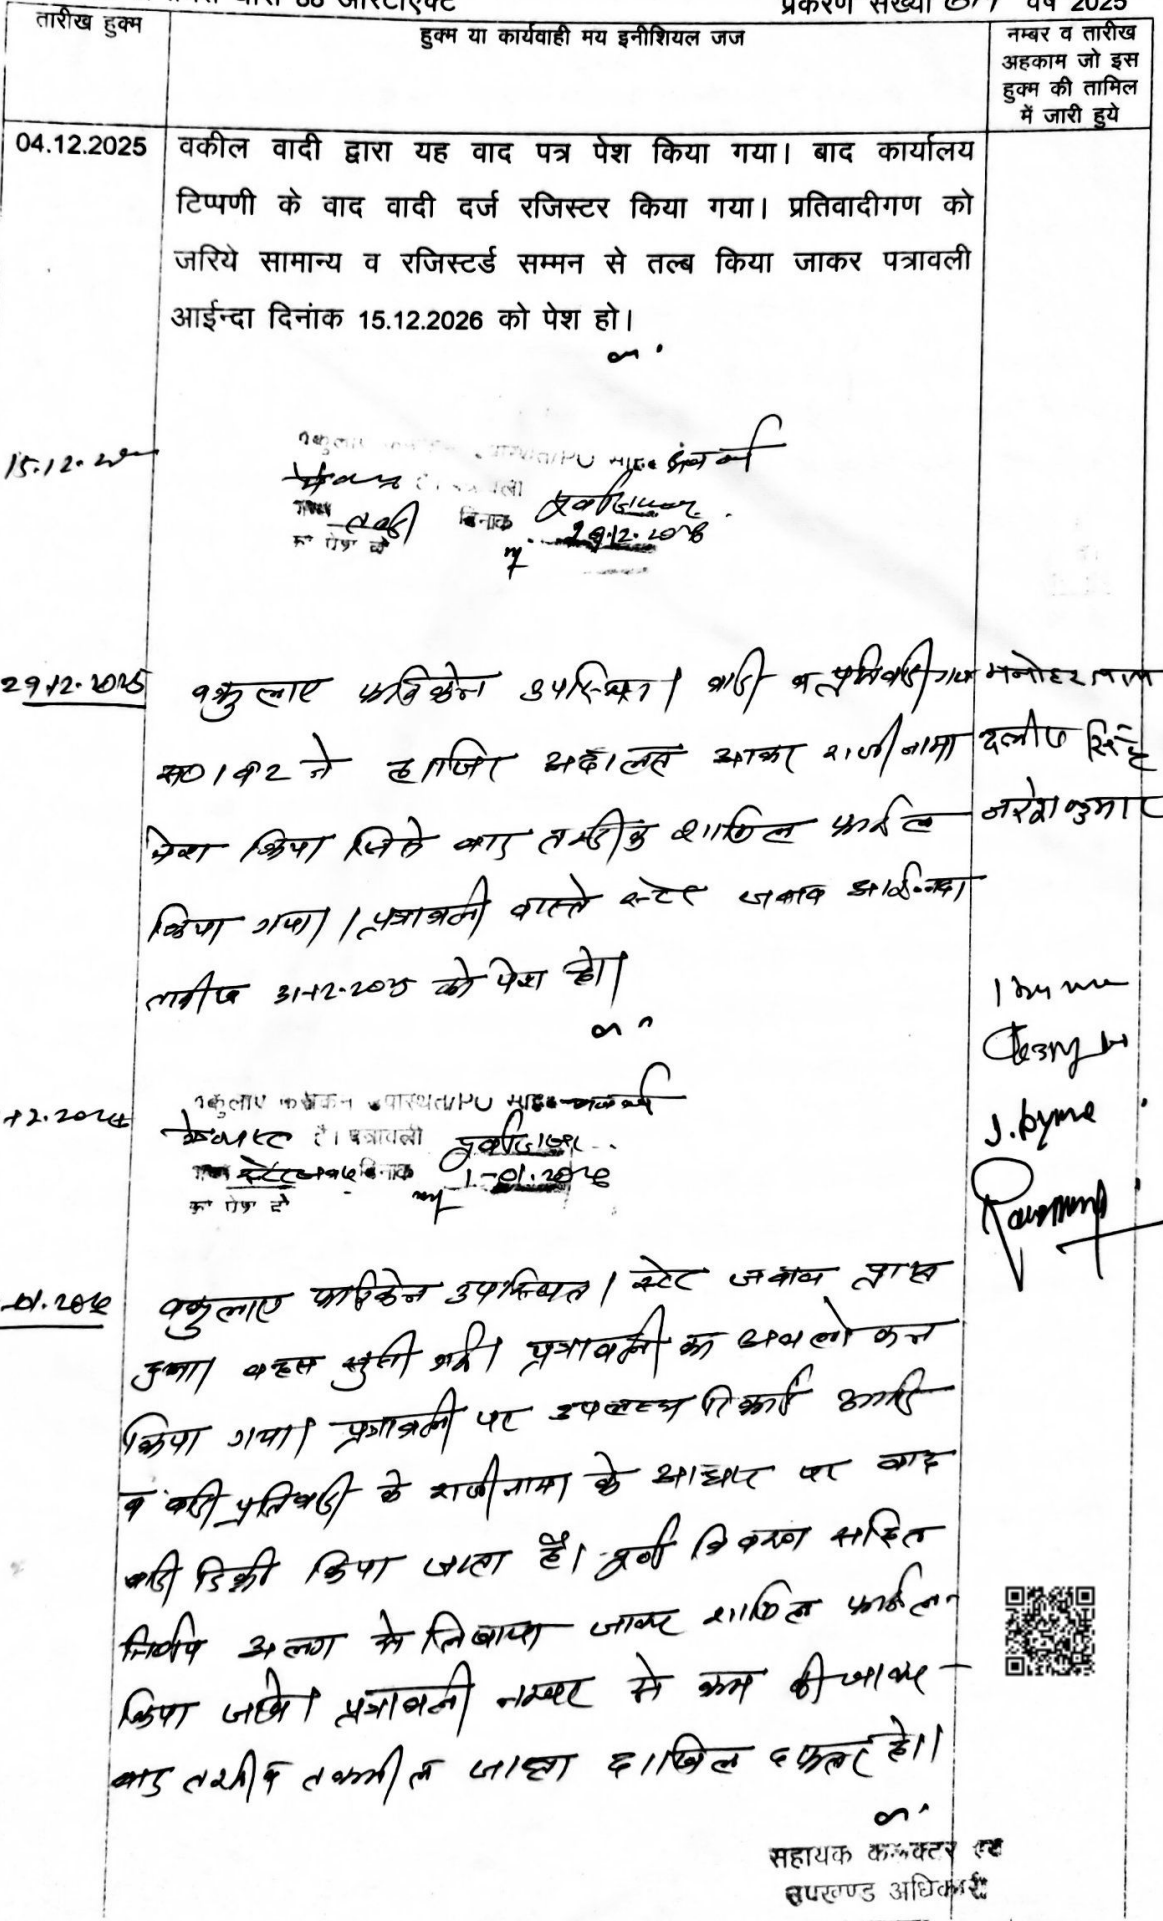 धारा 88 आरटीएक्ट प्रकरण संख्या वर्ष 2025
तारीख हुक्म
हुक्म या कार्यवाही मय इनीशियल जज
नम्बर व तारीख
अहकाम जो इस
हुक्म की तामिल
में जारी हुये
04.12.2025
वकील वादी द्वारा यह वाद पत्र पेश किया गया। बाद कार्यालय
टिप्पणी के वाद वादी दर्ज रजिस्टर किया गया। प्रतिवादीगण को
जरिये सामान्य व रजिस्टर्ड सम्मन से तल्ब किया जाकर पत्रावली
आईन्दा दिनांक 15.12.2026 को पेश हो।
15.12.
दिनांक
29.12.2025
वकुलाए फरिकेन उपस्थित। वादी व प्रतिवादीगण
1 व 2 ने हाजिर अदालत आकर राजीनामा
पेश किया जिसे बाद तस्दीक शामिल फाईल
किया गया। पत्रावली वास्ते स्टेट जवाब आईन्दा
तारीख 31-12-2025 को पेश हो।
मनोहर लाल
दलीप सिंह
नरेश कुमार
वकुलाए उपस्थित/PU
है। पत्रावली
स्टेट जवाब दिनांक 1-01.2026
को पेश हो
वकुलाए फरिकेन उपस्थित। स्टेट जवाब प्राप्त
हुआ। बहस सुनी गई। पत्रावली का अवलोकन
किया गया। पत्रावली पर उपलब्ध रिकार्ड आदि
व वादी प्रतिवादी के राजीनामा के आधार पर वाद
वादी डिक्री किया जाता है। पूर्ण विवरण सहित
निर्णय अलग से लिखाया जाकर शामिल फाईल
किया जावे। पत्रावली नम्बर से कम की जाकर
बाद तरतीब तकमील जाब्ता दाखिल दफ्तर हो।
सहायक कलक्टर एवं
उपखण्ड अधिकारी